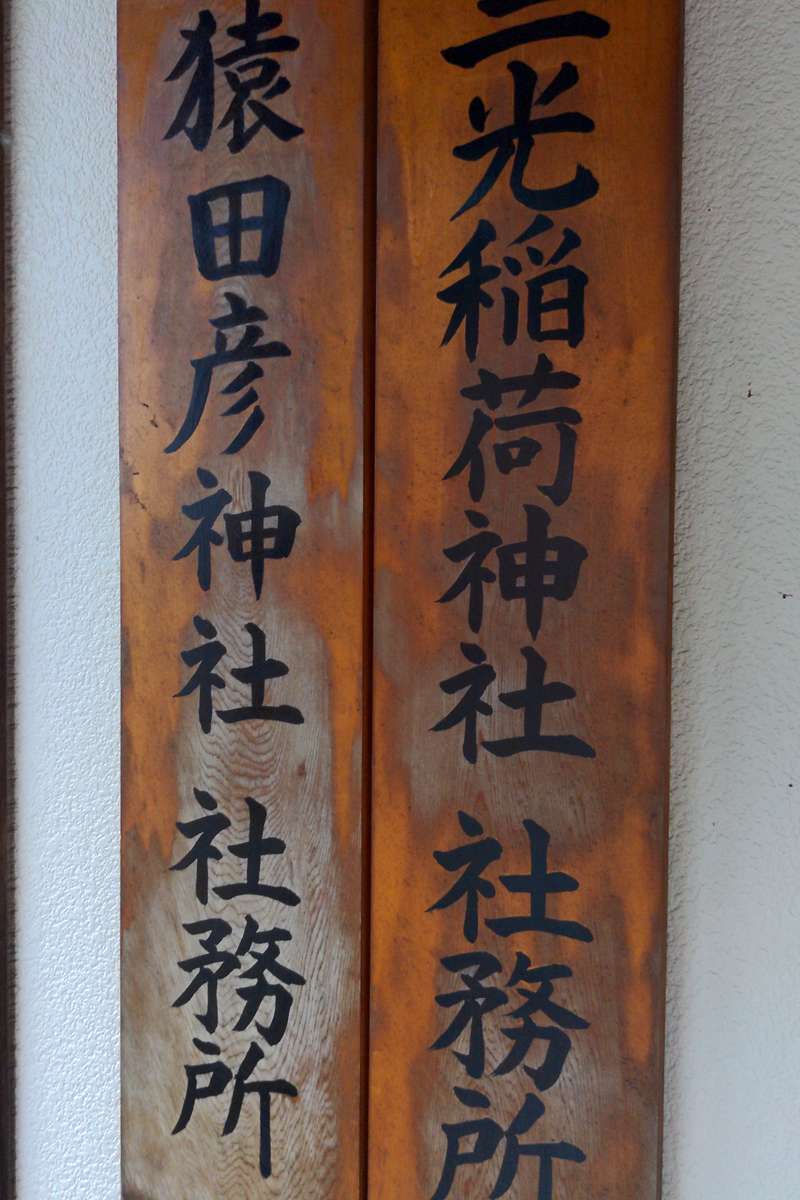 三光稲荷神社 社務所
猿田彦神社 社務所